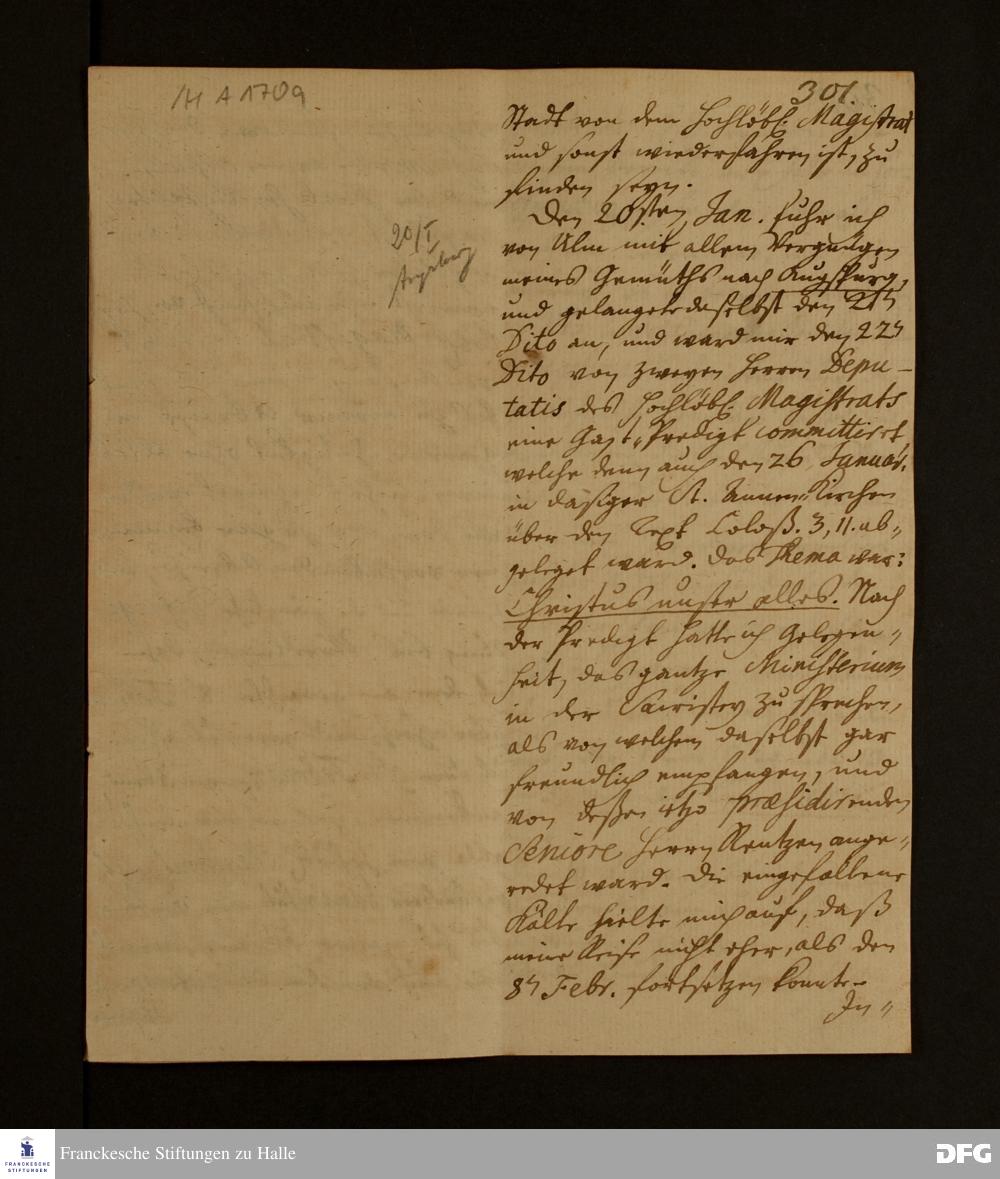 H A 170g
301.
Stadt von dem Hochlöbl. Magistrat
und sonst wiederfahren ist, zu
finden seyn.
20/I
Augsburg
Den 20sten Jan. fuhr ich
von Ulm mit allem Vergnügen
meines Gemüths nach Augspurg,
und gelangete daselbst den 21ten
Dito an, und ward mir den 22ten
Dito von zweyen Herren Depu-
tatis des Hochlöbl. Magistrats
eine Gast-Predigt committiret,
welche denn auch den 26 Januar.
in dasiger St. Annen-Kirchen
über den Text Coloß. 3, 11. ab-
geleget ward. Das Thema war:
Christus unser alles. Nach
der Predigt hatte ich Gelegen-
heit, das gantze Ministerium
in der Sacristey zu sprechen,
als von welchem daselbst gar
freundlich empfangen, und
von deßen itzo præsidirenden
Seniore Herrn Rentzen ange-
redet ward. Die eingefallene
Kälte hielte mich auf, daß
meine Reise nicht eher, als den
8ten Febr. fortsetzen konnte.
In-
Franckesche Stiftungen zu Halle
FRANCKESCHE
STIFTUNGEN
DFG